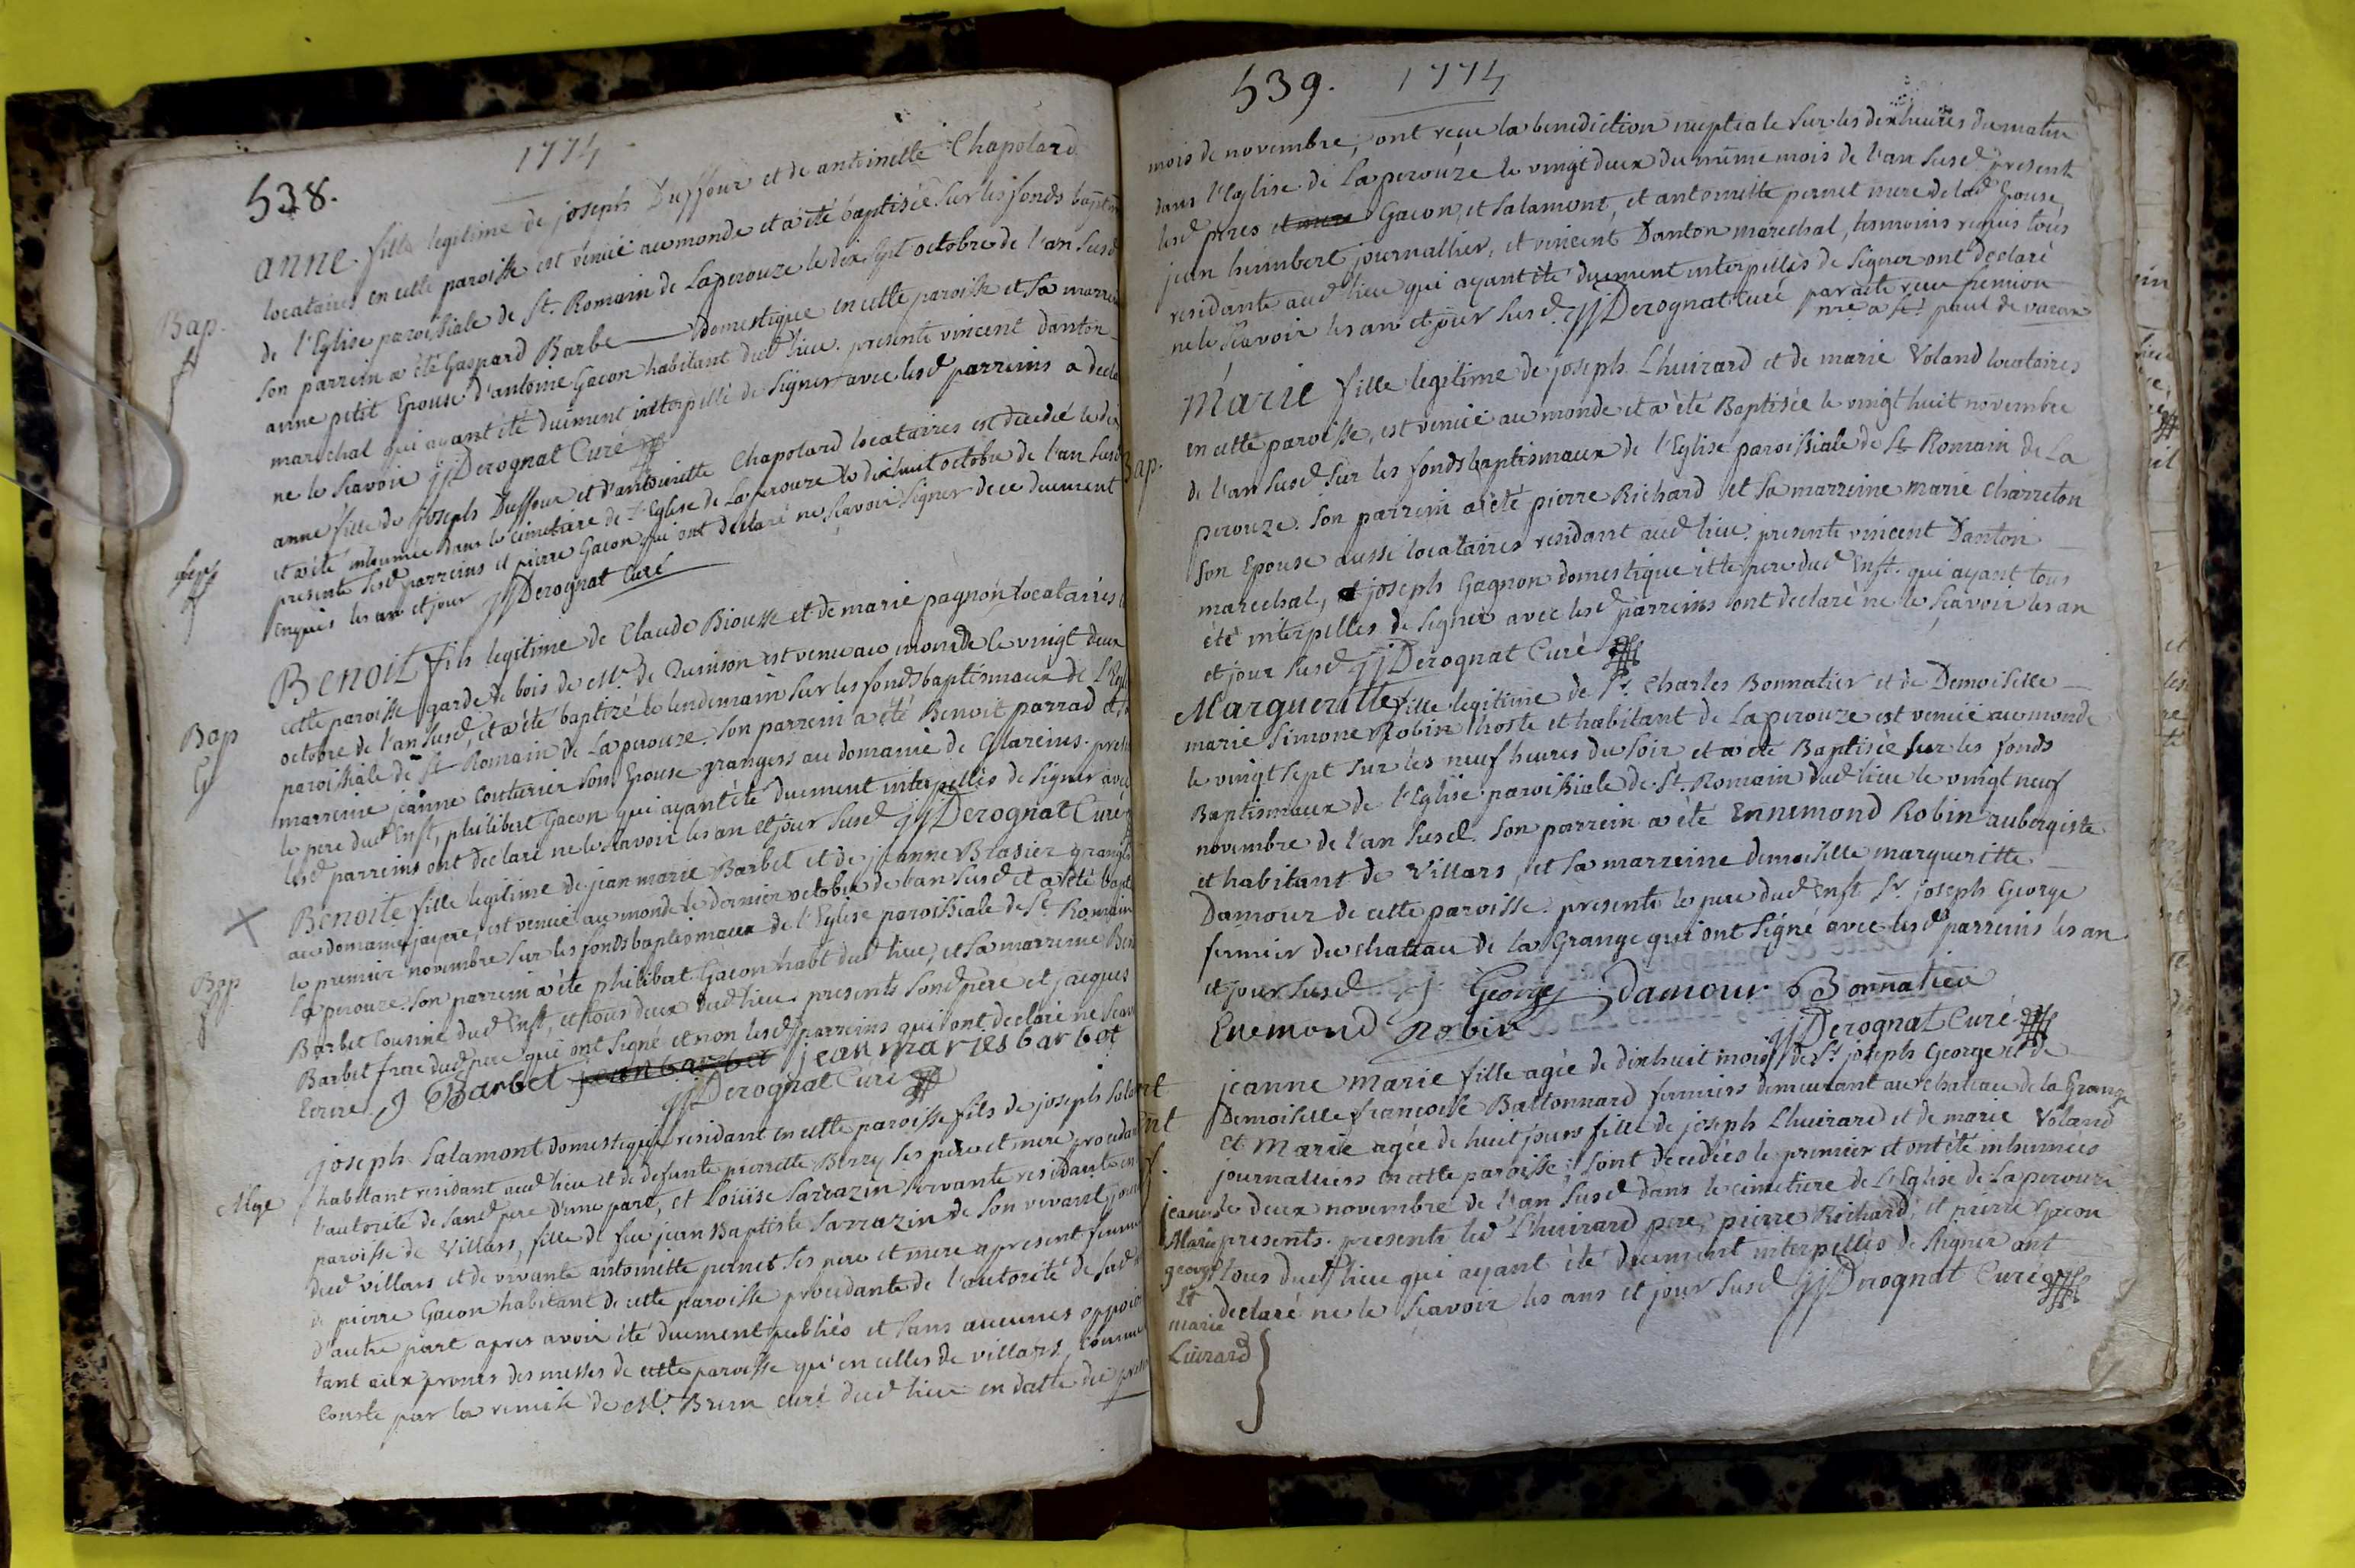 538.
1774
Bap.
anne fille legitime de joseph Duffour et de antoinette Chapolard
locataires en cette paroisse est venüe au monde et a été baptisée sur les fonds bapt
de l'Eglise paroissiale de St. Romain de Laperouze le dix sept octobre de l'an susd
son parrein a été Gaspard Barbe domestique en cette paroisse et sa marre
anne petit Epouse d'antoine Gacon habitant dud lieu. presents vincent danton
marechal qui ayant été düement interpellé de signer avec lesd parreins a decla
ne le scavoir jjDerognat Curé
anne fille de joseph Duffour et d'antoinette Chapolard locataires est decedée le dix
et a été inhumée dans le cimetiere de l'Eglise de Laperouze le dix huit octobre de l'an susd
presents lesd parreins et pierre Gacon qui ont declaré ne scavoir signer de ce duement
enquis les an et jour jjDerognat Curé
Bap
G
Benoit fils legitime de Claude Biousse et de marie pagnon locataires
cette paroisse garde de bois de Mr. de Quinson est venu au monde le vingt deux
octobre de l'an susd, et a été baptizé le lendemain sur les fonds baptismaux de l'Egl
paroissiale de St Romain de Laperouze. son parrein a été Benoit parrad et sa
marreine jeanne Couturier son Epouse grangers au domaine de Glareins. prese
le pere dud Enft, philibert Gacon qui ayant été duement interpellés de signer avec
lesd parreins ont declaré ne le scavoir les an et jour susd jjDerognat Curé
Bap
Benoite fille legitime de jean marie Barbet et de jeanne Brasier grangers
au domaine jayere, est venüe au monde le dernier octobre de l'an susd et a été bapt
le premier novembre sur les fonds baptismaux de l'Eglise paroissiale de St Romain
Laperouze. son parrein a été philibat Gacon habt dud lieu, et sa marreine Ben
Barbet Cousine dud Enft, et tous deux dud lieu. presents sond pere et jacques
Barbet frere dud pere qui ont signé et non lesd parreins qui ont declaré ne scav
Ecrire. J Barbet jean barbet jean maries barbet
jjDerognat Curé
Mge
joseph Salamont domestique residant en cette paroisse fils de joseph Sala
habitant residant aud lieu et de defunte pierrette Berry ses pere et mere procedant
l'autorité de sond pere d'une part, et Loüise Sarrazin servante residante en
paroisse de Villars, fille de feu jean Baptiste Sarrazin de son vivant jour
dud villars et de vivante antoinette pernet ses pere et mere apresent femme
de pierre Gacon habitant de cette paroisse procedante de l'autorité de sad
d'autre part apres avoir été duement publiés et sans aucunes oppo
tant aux prones des messes de cette paroisse qu'en celles de villars, comme
conste par la remise de Mr. Brun curé dud lieu en datte du
539. 1774
mois de novembre, ont reçu la benediction nuptiale sur les dix heures du matin
dans l'Eglise de Laperouze le vingt deux du même mois de l'an susd. present
lesd peres et mere Gacon, et Salamont, et antoinette pernet mere de lad Epouse,
jean humbert journallier, et vincent Danton marechal, tesmoins requis tous
residants aud lieu qui ayant été duement interpellés de signer ont declaré
ne le scavoir les an et jour susd. jjDerognat curé
par acte reçu
a St paul de varax
Bap.
Marie fille legitime de joseph Lhuirard et de marie Voland locataires
en cette paroisse, est venüe au monde et a été Baptisée le vingt huit novembre
de l'an susd sur les fonds baptismaux de l'Eglise paroissiale de St Romain de La
perouze. son parrein a été pierre Richard et sa marreine marie Charreton
son Epouse aussi locataires residant aud lieu. presents vincent Danton
marechal, et joseph Gagnon domestique et le pere dud Enft. qui ayant tous
été interpellés de signer avec lesd parreins ont declaré ne le scavoir les an
et jour susd jjDerognat Curé
Marguerite fille legitime de Sr. Charles Bonnatier et de Demoiselle
marie Simone Robin hoste et habitant de Laperouze est venüe au monde
le vingt sept sur les neuf heures du soir et a été Baptisée sur les fonds
Baptismaux de l'Eglise paroissiale de St. Romain dud lieu le vingt neuf
novembre de l'an susd. Son parrein a été Ennemond Robin aubergiste
et habitant de Villars, et sa marreine demoiselle margueritte
Damour de cette paroisse. presents le pere dud Enft Sr. joseph George
fermier du chateau de la Grange qui ont signé avec lesd parreins les an
et jour susd J. George Damour Bonnatier
Enemond Robin jjDerognat Curé
jeanne
Marie
george
Et
marie
Luirard
jeanne marie fille agée de dixhuit mois de Sr joseph George et de
Demoiselle francoise Battonnard fermiers demeurant au chateau de la Grange
et Marie agée de huit jours fille de joseph Lhuirard et de marie Voland
journalliers en cette paroisse, sont decedées le premier et ont été inhumées
le deux novembre de l'an susd dans le cimetiere de l'Eglise de Laperouze
presents. presents led Lhuirard pere, pierre Richard, et pierre Gacon
tous dud lieu qui ayant été duement interpellés de signer ont
declaré ne le scavoir les ans et jour susd jjDerognat Curé